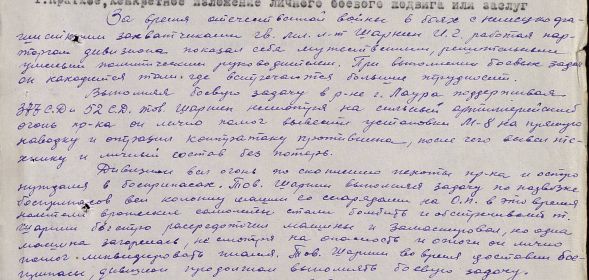 1. Краткое, конкретное изложение личного боевого подвига или заслуг
За время отечественной войны в боях с немецко фа-
шистскими захватчиками гв. мл. л-т Шаркин И.Г. работая пар-
торгом дивизиона показал себя мужественным, решительным
умелым политическим руководителем. При выполнении боевых задач
он находится там где встречаются большие трудности.
Выполняя боевую задачу в р-не г. Лаура поддерживая
377 С.Д. и 52 С.Д. тов. Шаркин несмотря на сильный артиллерийский
огонь пр-ка он лично помог вывести установки М-8 на прямую
наводку и отразил контратаку противника, после чего вывел те-
хнику и личный состав без потерь.
Дивизион вел огонь по скоплению пехоты пр-ка и остро
нуждался в боеприпасах. Тов. Шаркин выполняя задачу по подвозке
боеприпасов вел колонну машин со снарядами на О.П. в это время
налетели вражеские самолеты стали бомбить и обстреливать т.
Шаркин быстро рассредоточил машины и замаскировал, но одна
машина загорелась, не смотря на опасность и огонь он лично
помог ликвидировать пламя. Тов. Шаркин во время доставил бое-
припасы, дивизион продолжал выполнять боевую задачу.